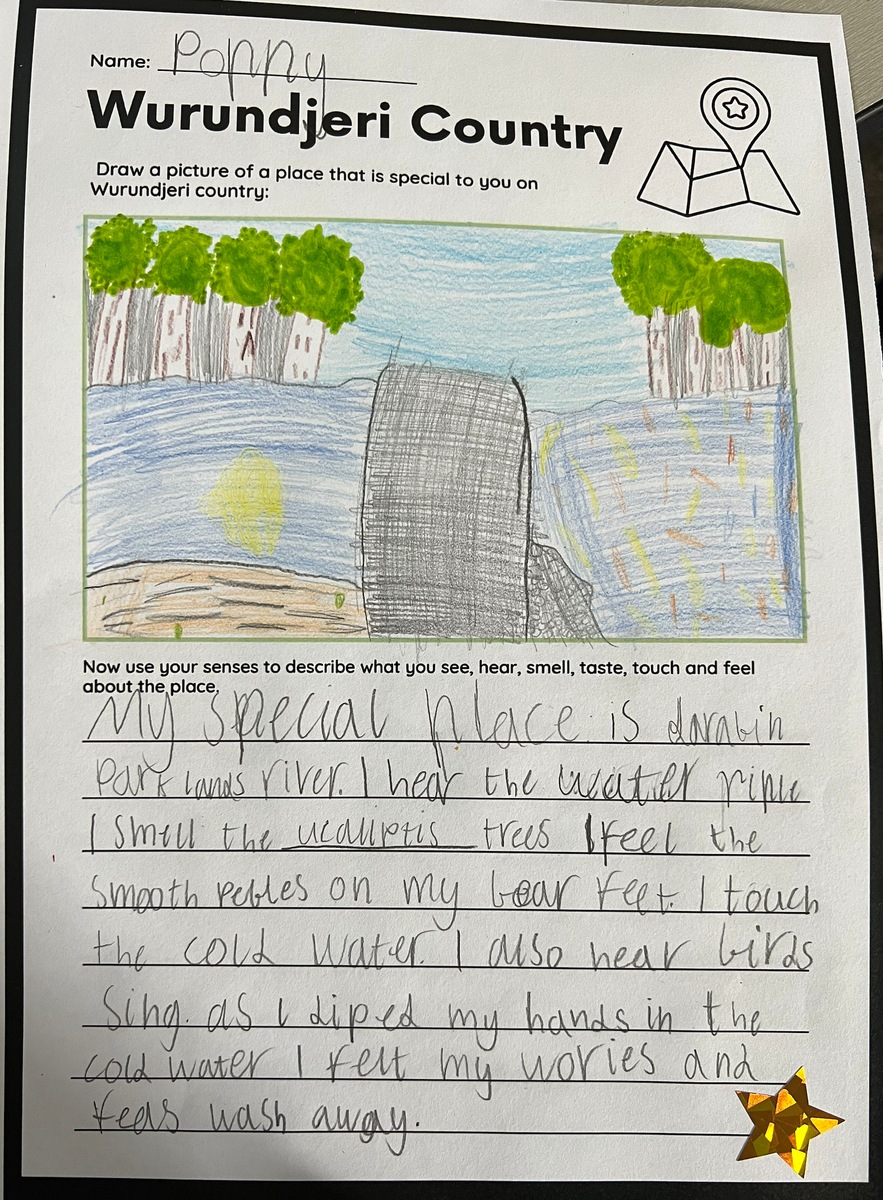 Name: Poppy
Wurundjeri Country
Draw a picture of a place that is special to you on
Wurundjeri country:
Now use your senses to describe what you see, hear, smell, taste, touch and feel
about the place.
My special place is darabin
Park lands river. I hear the water riple
I smell the ucaliptis trees I feel the
smooth pebles on my bear feet. I touch
the cold water. I also hear birds
Sing. as I diped my hands in the
cold water I felt my wories and
feas wash away.